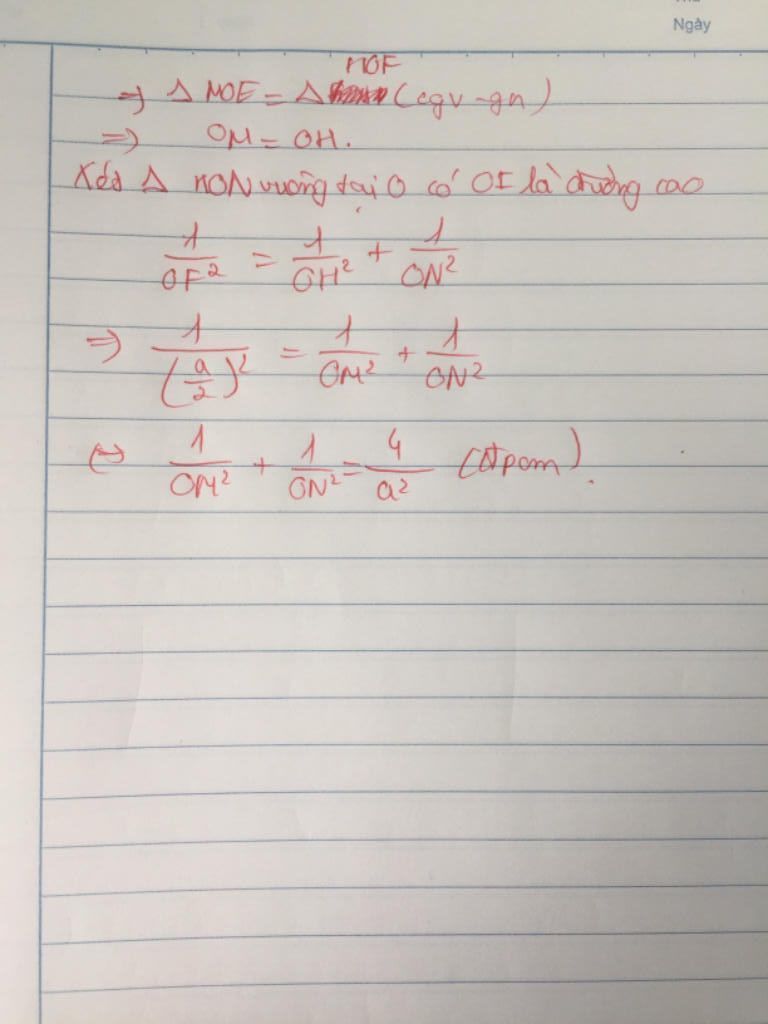 Ngày
HOF
=> Δ MOE = Δ (cgv - gn)
=> OM = OH.
Xét Δ HON vuông tại O có OF là đường cao
1/OF² = 1/OH² + 1/ON²
=> 1/(a/2)² = 1/OM² + 1/ON²
<=> 1/OM² + 1/ON² = 4/a² (đpcm).